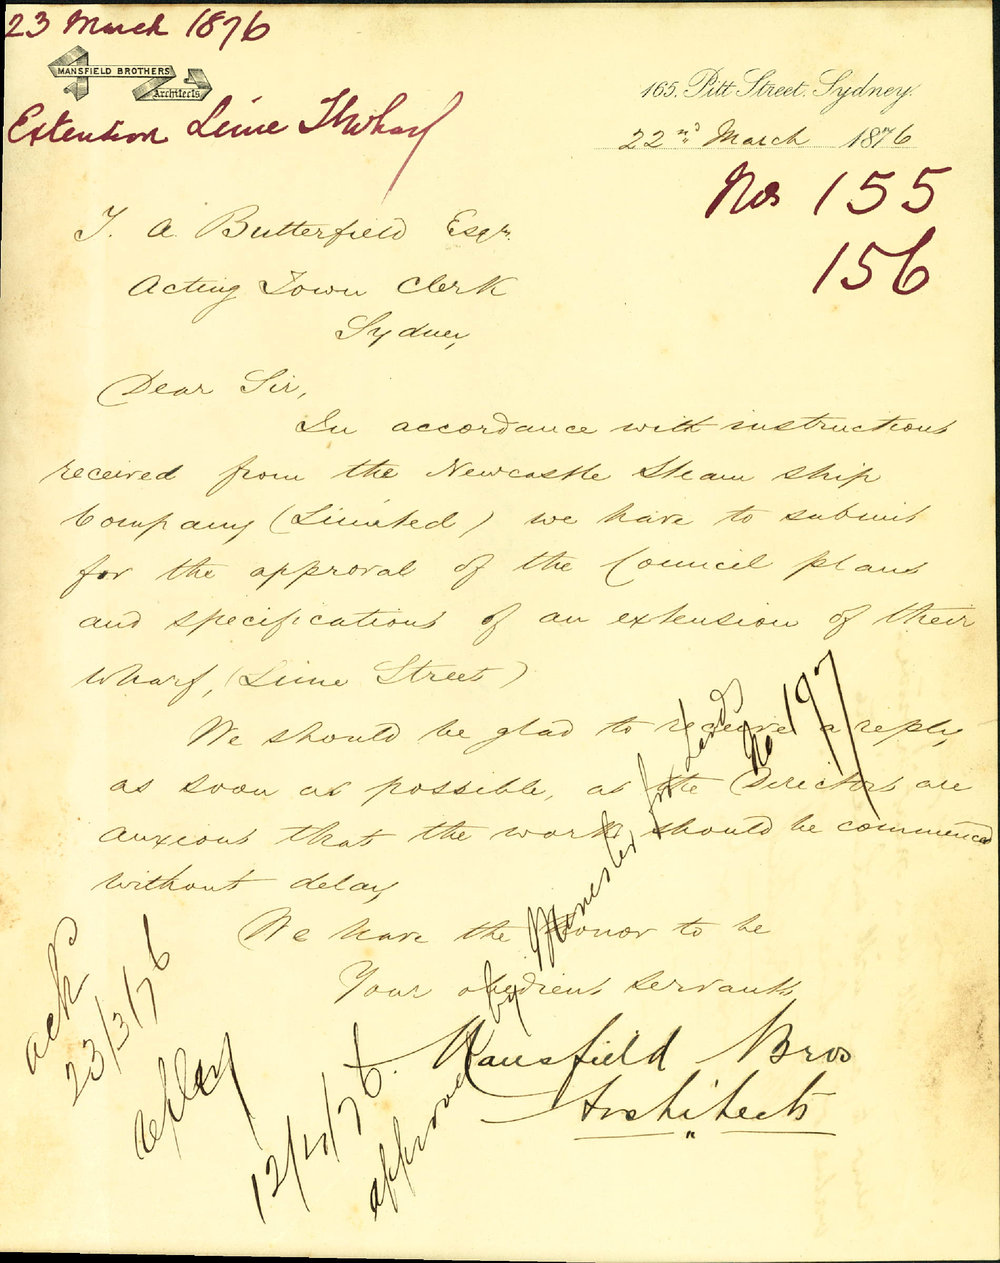 23 March 1876
MANSFIELD BROTHERS
Architects
165. Pitt Street. Sydney.
Extention Lime St Wharf
22nd March 1876
Nos 155
156
T. A. Butterfield Esqr.
Acting Town Clerk
Sydney,
Dear Sir,
In accordance with instructions
received from the Newcastle Steam ship
Company (Limited) we have to submit
for the approval of the Council plans
and specifications of an extension of their
Wharf, (Lime Street)
We should be glad to receive a reply,
as soon as possible, as the Directors are
anxious that the work should be commenced
without delay,
We have the Honor to be
Your obedient servants
Mansfield Bros
Architects
ackd
23/3/76
12/4/76.
approved by Minister for Lands
No 197